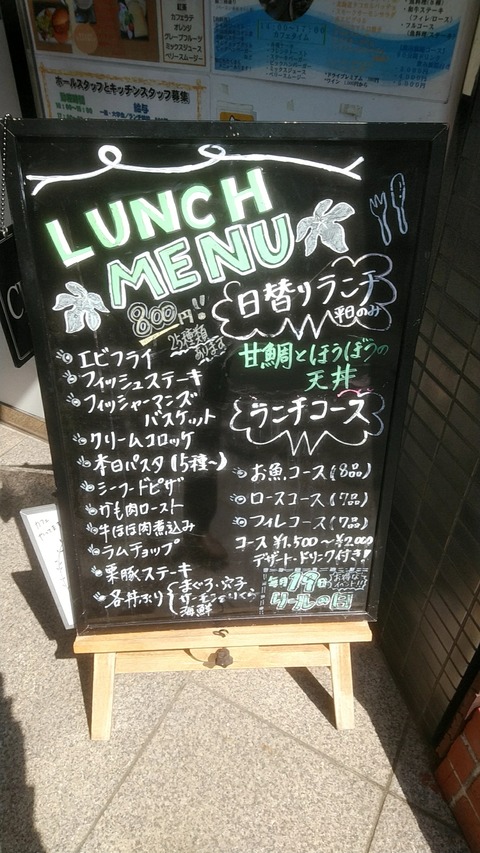 紅茶
カフェラテ
オレンジ
グレープフルーツ
ミックスジュース
ベリースムージー
ホールスタッフとキッチンスタッフ募集
LUNCH
MENU
800円!!
25種類
あります
日替りランチ
平日のみ
甘鯛とほうぼうの
天丼
エビフライ
フィッシュステーキ
フィッシャーマンズ
バスケット
クリームコロッケ
本日パスタ(5種〜)
シーフードピザ
がも肉ロースト
牛ほほ肉煮込み
ラムチョップ
栗豚ステーキ
各丼ぶり
まぐろ・穴子
サーモン&いくら
海鮮
ランチコース
お魚コース(8品)
ロースコース(7品)
フィレコース(7品)
コース¥1,500〜¥2,000
デザート・ドリンク付き!
毎月19日
お得な
イベント!!
クールの日